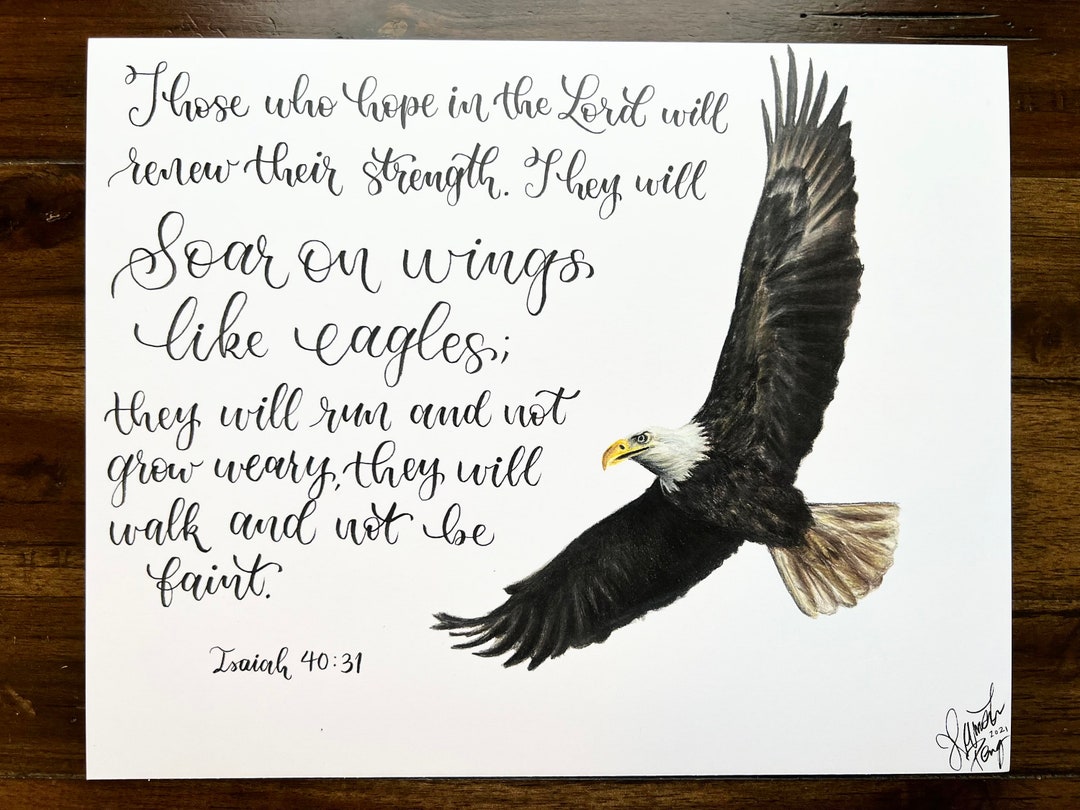 Those who hope in the Lord will
renew their strength. They will
Soar on wings
like eagles;
they will run and not
grow weary, they will
walk and not be
faint.
Isaiah 40:31
2021